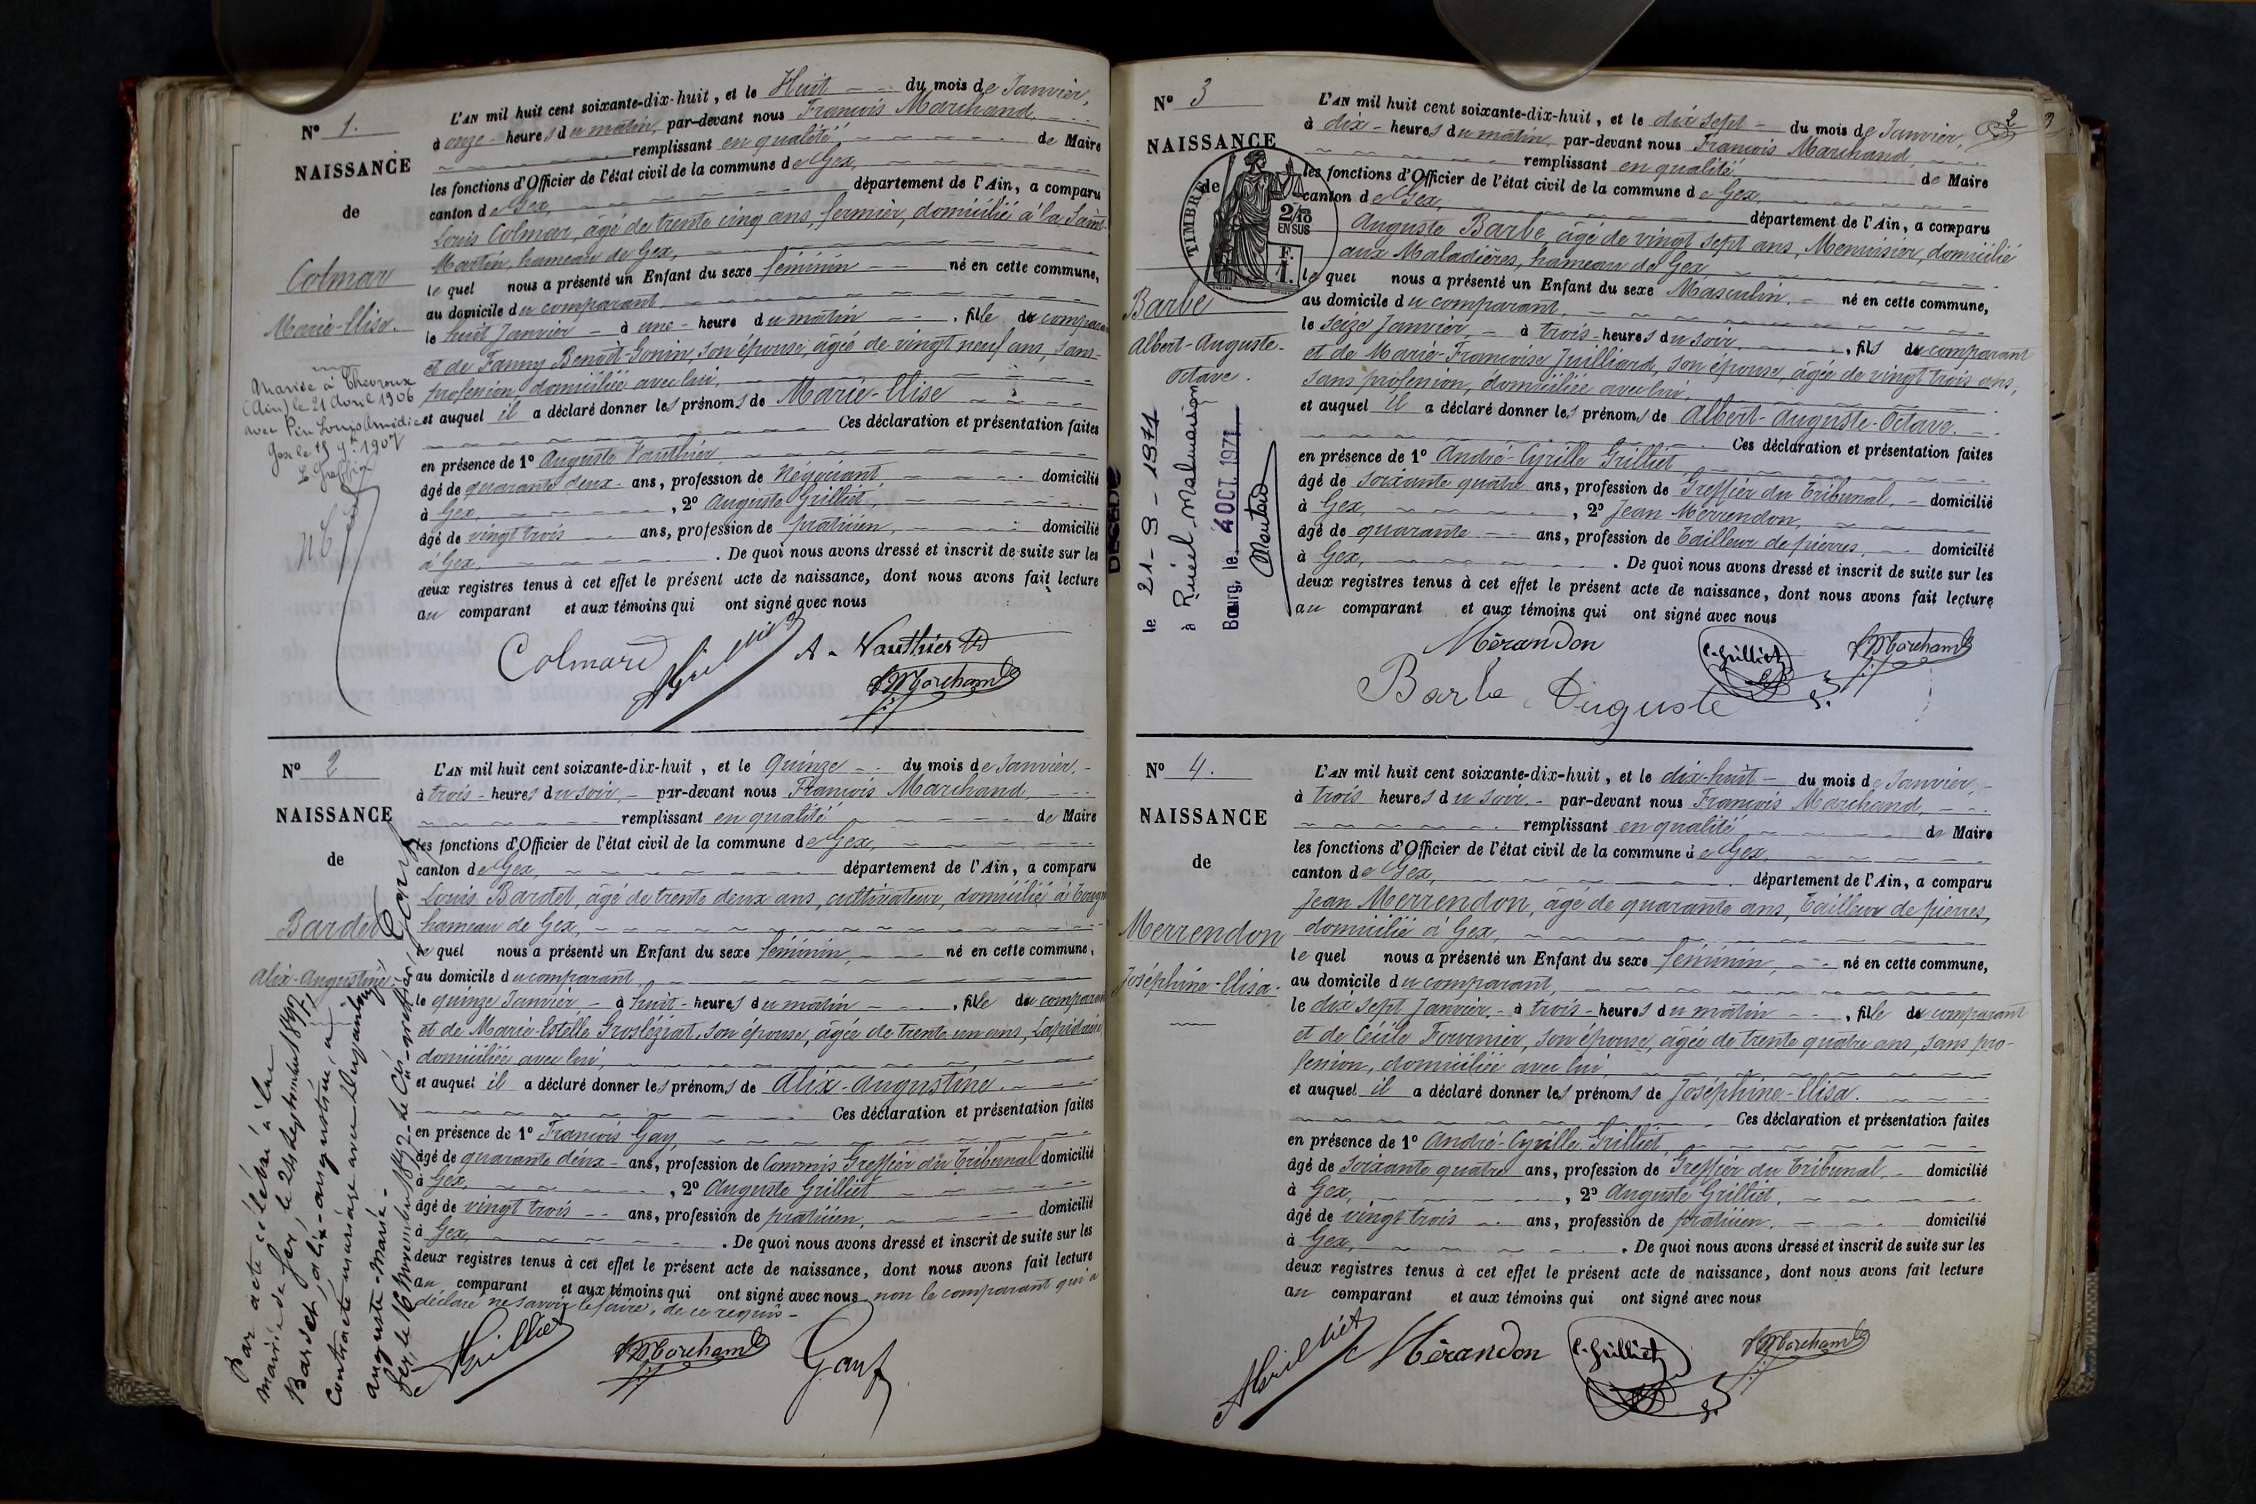 N° 1.
NAISSANCE
de
Colmar
Marie-Elise.
Mariée à Chevroux
(Ain) le 21 avril 1906
avec Pin Louis Amédée
Gex le 15 1907
L'AN mil huit cent soixante-dix-huit, et le Huit du mois de Janvier,
à onze heures du matin, par-devant nous François Marchand
remplissant en qualité de Maire
les fonctions d'Officier de l'état civil de la commune de Gex,
canton de Gex, département de l'Ain, a comparu
Louis Colmar, âgé de trente cinq ans, fermier, domicilié à la Saint
Martin, hameau de Gex,
lequel nous a présenté un Enfant du sexe féminin né en cette commune,
au domicile du comparant
le huit Janvier à une heure du matin, fille du comparant
et de Fanny Benoit-Gonin, son épouse, âgée de vingt neuf ans, sans
profession, domiciliée avec lui,
et auquel il a déclaré donner les prénoms de Marie-Elise
Ces déclaration et présentation faites
en présence de 1° Auguste Vauthier
âgé de quarante deux ans, profession de Négociant domicilié
à Gex, 2° Auguste Grilliet,
âgé de vingt trois ans, profession de praticien, domicilié
à Gex, . De quoi nous avons dressé et inscrit de suite sur les
deux registres tenus à cet effet le présent acte de naissance, dont nous avons fait lecture
au comparant et aux témoins qui ont signé avec nous
Colmard AGrilliet A. Vauthier
f Marchand
N° 2
NAISSANCE
de
Bardet
Alix-Augustine
Par acte célébré à la
mairie de Gex, le 24 septembre 1892
Bardet, alix-augustine, a
Contracté mariage avec
auguste-Marie.
Gex, le 16 novembre 1892. Le Cis-greffier, Gay
L'AN mil huit cent soixante-dix-huit, et le quinze du mois de Janvier,
à trois heures du soir, par-devant nous François Marchand
remplissant en qualité de Maire
les fonctions d'Officier de l'état civil de la commune de Gex,
canton de Gex, département de l'Ain, a comparu
Louis Bardet, âgé de trente deux ans, cultivateur, domicilié à Tougin
hameau de Gex,
lequel nous a présenté un Enfant du sexe féminin, né en cette commune,
au domicile du comparant
le quinze Janvier à huit heures du matin, fille du comparant
et de Marie-Estelle Grosléziat, son épouse, âgée de trente un ans, Lapidaire,
domiciliée avec lui,
et auquel il a déclaré donner les prénoms de Alix-Augustine.
Ces déclaration et présentation faites
en présence de 1° François Gay
âgé de quarante deux ans, profession de Commis Greffier du Tribunal domicilié
à Gex, 2° Auguste Grilliet
âgé de vingt trois ans, profession de praticien, domicilié
à Gex, . De quoi nous avons dressé et inscrit de suite sur les
deux registres tenus à cet effet le présent acte de naissance, dont nous avons fait lecture
au comparant et aux témoins qui ont signé avec nous non le comparant qui a
déclaré ne savoir le faire, de ce requis
AGrilliet f Marchand Gay f
2
N° 3
NAISSANCE
de
TIMBRE
2/10
EN SUS
F.
1.
Barbe
Albert-Auguste-
Octave.
DÉCÉDÉ
le 21-9-1971
à Rueil-Malmaison
Bourg, le 4 OCT. 1971
L'AN mil huit cent soixante-dix-huit, et le dix sept du mois de Janvier,
à dix heures du matin, par-devant nous François Marchand,
remplissant en qualité de Maire
les fonctions d'Officier de l'état civil de la commune de Gex,
canton de Gex, département de l'Ain, a comparu
Auguste Barbe, âgé de vingt sept ans, Menuisier, domicilié
aux Maladières, hameau de Gex,
lequel nous a présenté un Enfant du sexe Masculin, né en cette commune,
au domicile du comparant,
le seize Janvier à trois heures du soir, fils du comparant
et de Marie-Françoise Juilliard, son épouse, âgée de vingt trois ans,
sans profession, domiciliée avec lui,
et auquel il a déclaré donner les prénoms de Albert-Auguste-Octave.
Ces déclaration et présentation faites
en présence de 1° André-Cyrille Grilliet
âgé de soixante quatre ans, profession de Greffier du Tribunal, domicilié
à Gex, 2° Jean Merrendon,
âgé de quarante ans, profession de Tailleur de pierres, domicilié
à Gex, . De quoi nous avons dressé et inscrit de suite sur les
deux registres tenus à cet effet le présent acte de naissance, dont nous avons fait lecture
au comparant et aux témoins qui ont signé avec nous
Mérandon C. Grilliet f Marchand
Barbe Auguste
N° 4.
NAISSANCE
de
Merrendon
Joséphine-Elisa.
L'AN mil huit cent soixante-dix-huit, et le dix-huit du mois de Janvier,
à trois heures du soir, par-devant nous François Marchand,
remplissant en qualité de Maire
les fonctions d'Officier de l'état civil de la commune de Gex,
canton de Gex, département de l'Ain, a comparu
Jean Merrendon, âgé de quarante ans, Tailleur de pierres,
domicilié à Gex,
lequel nous a présenté un Enfant du sexe féminin, né en cette commune,
au domicile du comparant,
le dix sept Janvier, à trois heures du matin, fille du comparant
et de Cécile Fournier, son épouse, âgée de trente quatre ans, sans pro-
fession, domiciliée avec lui,
et auquel il a déclaré donner les prénoms de Joséphine-Elisa.
Ces déclaration et présentation faites
en présence de 1° André-Cyrille Grilliet,
âgé de soixante quatre ans, profession de Greffier du Tribunal, domicilié
à Gex, 2° Auguste Grilliet,
âgé de vingt trois ans, profession de praticien, domicilié
à Gex, . De quoi nous avons dressé et inscrit de suite sur les
deux registres tenus à cet effet le présent acte de naissance, dont nous avons fait lecture
au comparant et aux témoins qui ont signé avec nous
AGrilliet Mérandon C. Grilliet f Marchand